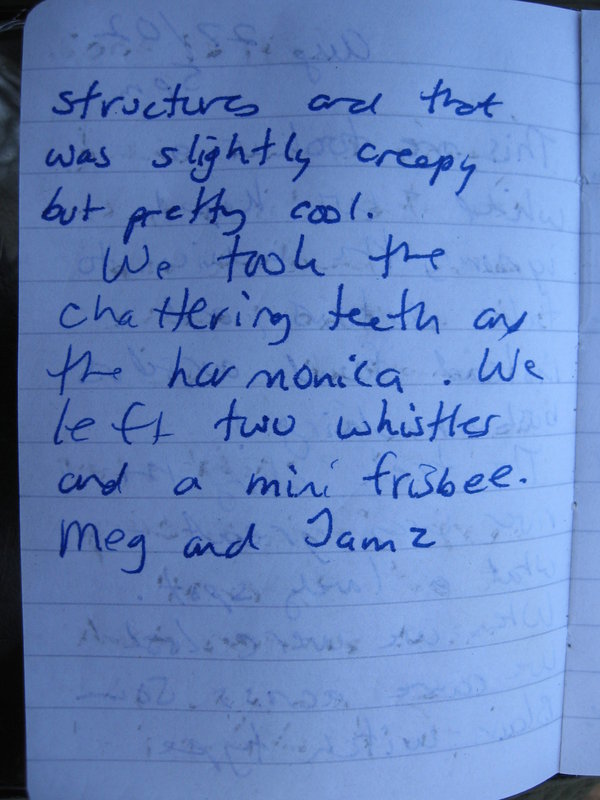 structures and that
was slightly creepy
but pretty cool.
We took the
chattering teeth and
the harmonica. We
left two whistles
and a mini frisbee.
Meg and Jamz